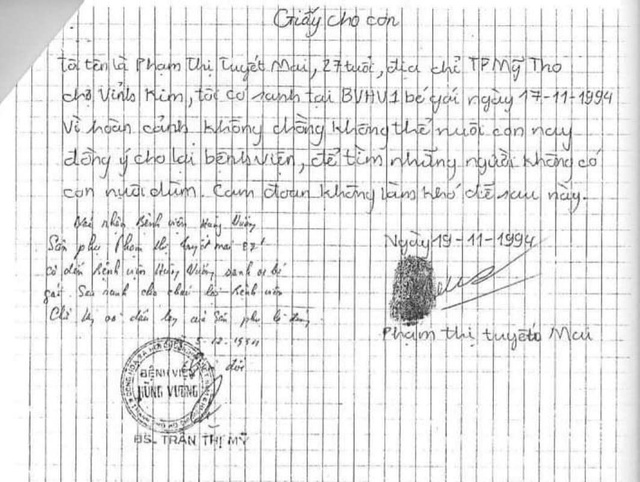 Giấy cho con
Tôi tên là Phạm Thị Tuyết Mai, 27 tuổi, địa chỉ TP Mỹ Tho
chợ Vĩnh Kim, tôi có sanh tại BVHV1 bé gái ngày 17-11-1994
vì hoàn cảnh không chồng không thể nuôi con nay
đồng ý cho lại bệnh viện, để tìm những người không có
con nuôi dùm. Cam đoan không làm khó dễ sau này.
Ngày 19-11-1994
Phạm thị tuyết Mai
Xác nhận Bệnh viện Hùng Vương
Sản phụ Phạm thị tuyết mai 27t
có đến Bệnh viện Hùng Vương sanh 01 bé
gái. Sau sanh cho cháu lại Bệnh viện
Chữ ký và dấu tay của Sản phụ là đúng.
5-12-1994
BỆNH VIỆN
HÙNG VƯƠNG
BS. TRẦN THỊ MỸ